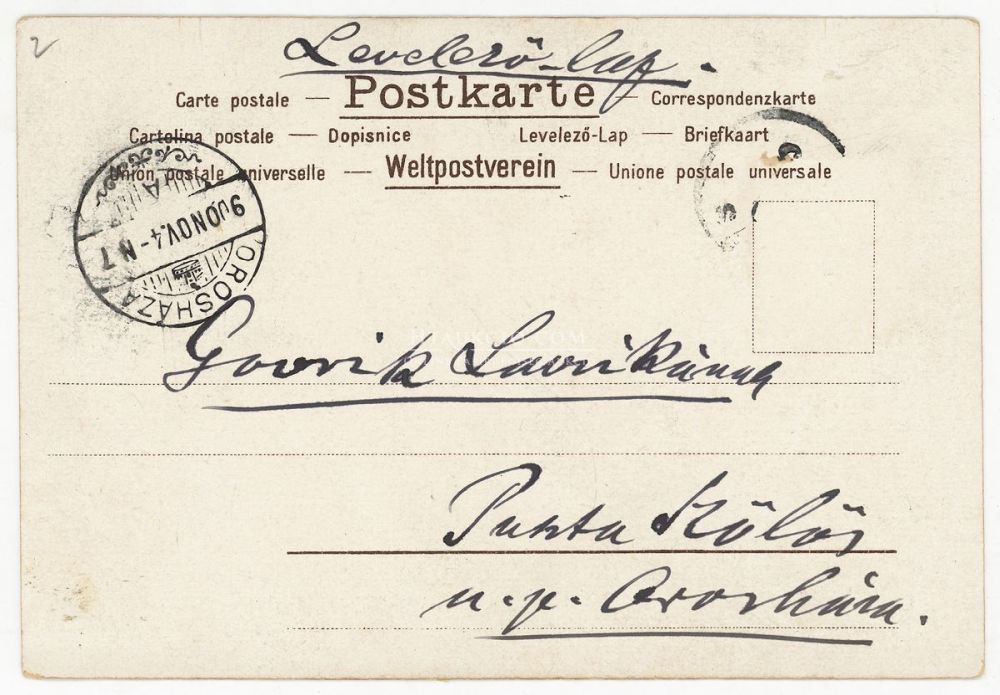 2
Levelező-lap.
Carte postale — Postkarte — Correspondenzkarte
Cartolina postale — Dopisnice Levelező-Lap — Briefkaart
Union postale universelle — Weltpostverein — Unione postale universale
OROSHÁZA
NOV. 4
Lavrikának
Puszta Kölös
u. p. Orosháza.